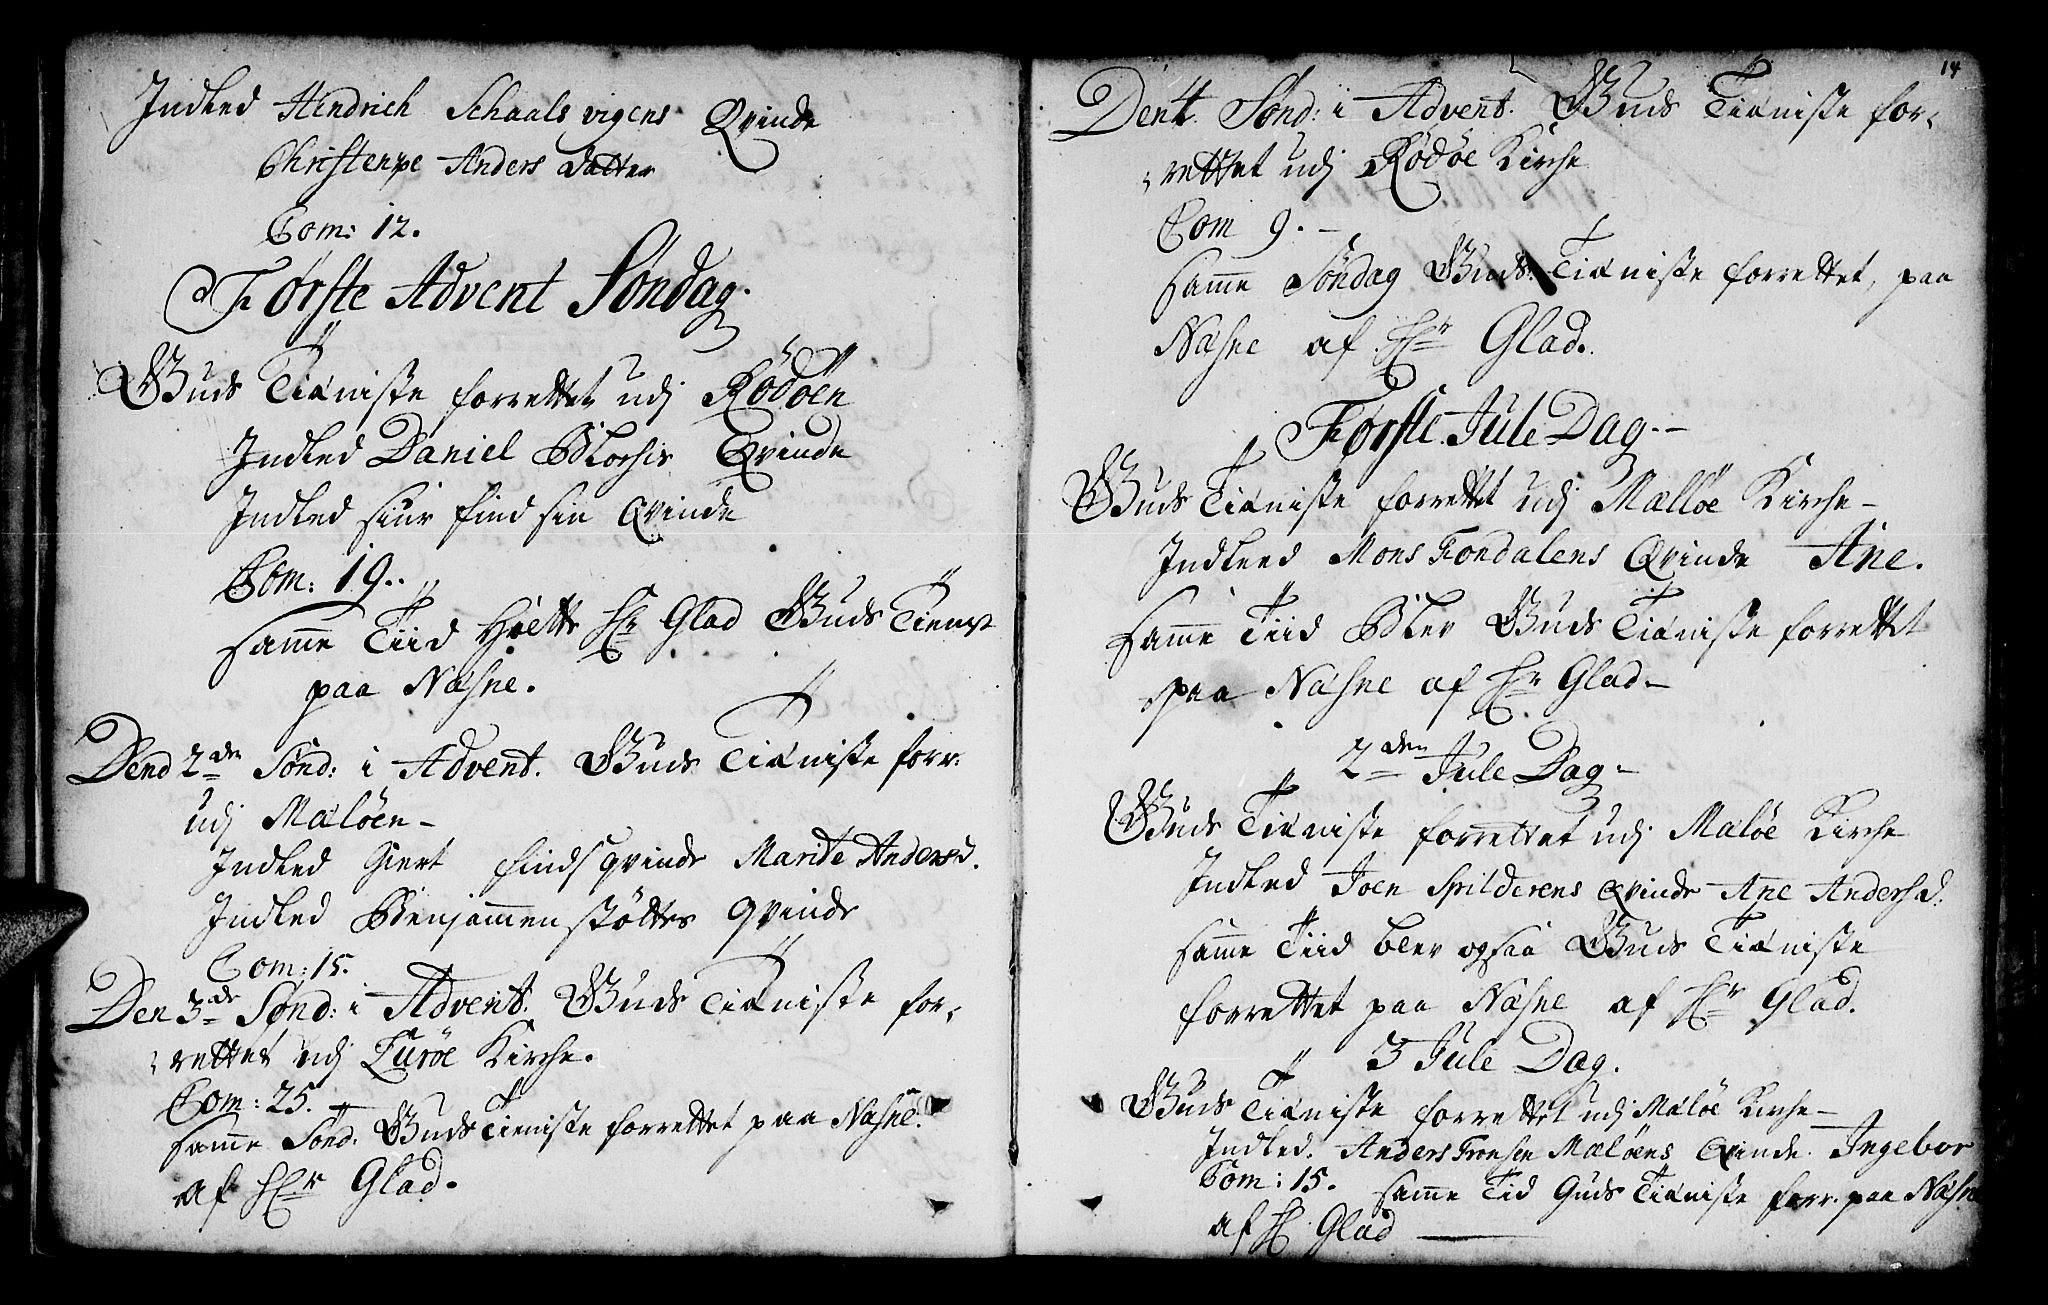 Indled Hendrich Schaalsvigens Qvinde
Christenpe Anders Datter
Com: 12.
Første Advent Søndag.
Guds Tieniste forrettet udj Rödöen
Indled Daniel Blochs Qvinde
Indled siur find sin Qvinde
Com: 19.
samme Tiid Holtt Hr Glad Guds Tienst
paa Næsne.
Dend 2de Sönd: i Advent. Guds Tieniste forr:
udj Mælöen -
Indled Giert finds qvinde Marite Andersd.
Indled Benjammen stöltes qvinde
Com: 15.
Den 3de Sønd: i Advent. Guds Tieniste for-
rettet udj Luröe Kirche.
Com: 25. -
samme Sönd. Guds Tieniste forrettet paa Næsne.
af Hr Glad.
14
Den 4. Sönd: i Advent. Guds Tieniste for-
rettet udj Rödöe Kirche
Com 9. -
samme Söndag Guds Tieniste forrettet, paa
Næsne af Hr Glad.
Første Jule Dag. -
Guds Tieniste forrettet udj Mællöe Kirche -
Indleed Mons Fondalens Qvinde Ane.
samme Tiid Blev Guds Tieniste forrettet
paa Næsne af Hr Glad -
2den Jule Dag -
Guds Tieniste forrettet udj Mælöe Kirche
Indled Joen Spilderens Qvinde Ane Andersd:
samme Tiid blev ogsaa Guds Tieniste
forrettet paa Næsne af Hr Glad.
3 Jule Dag.
Guds Tieniste forrettet udj Mælöe Kirche -
Indled. Anders Fronsen Mælöens Qvinde. Ingebor
Com: 15. samme Tid Guds Tieniste forr. paa Næsne
af H Glad